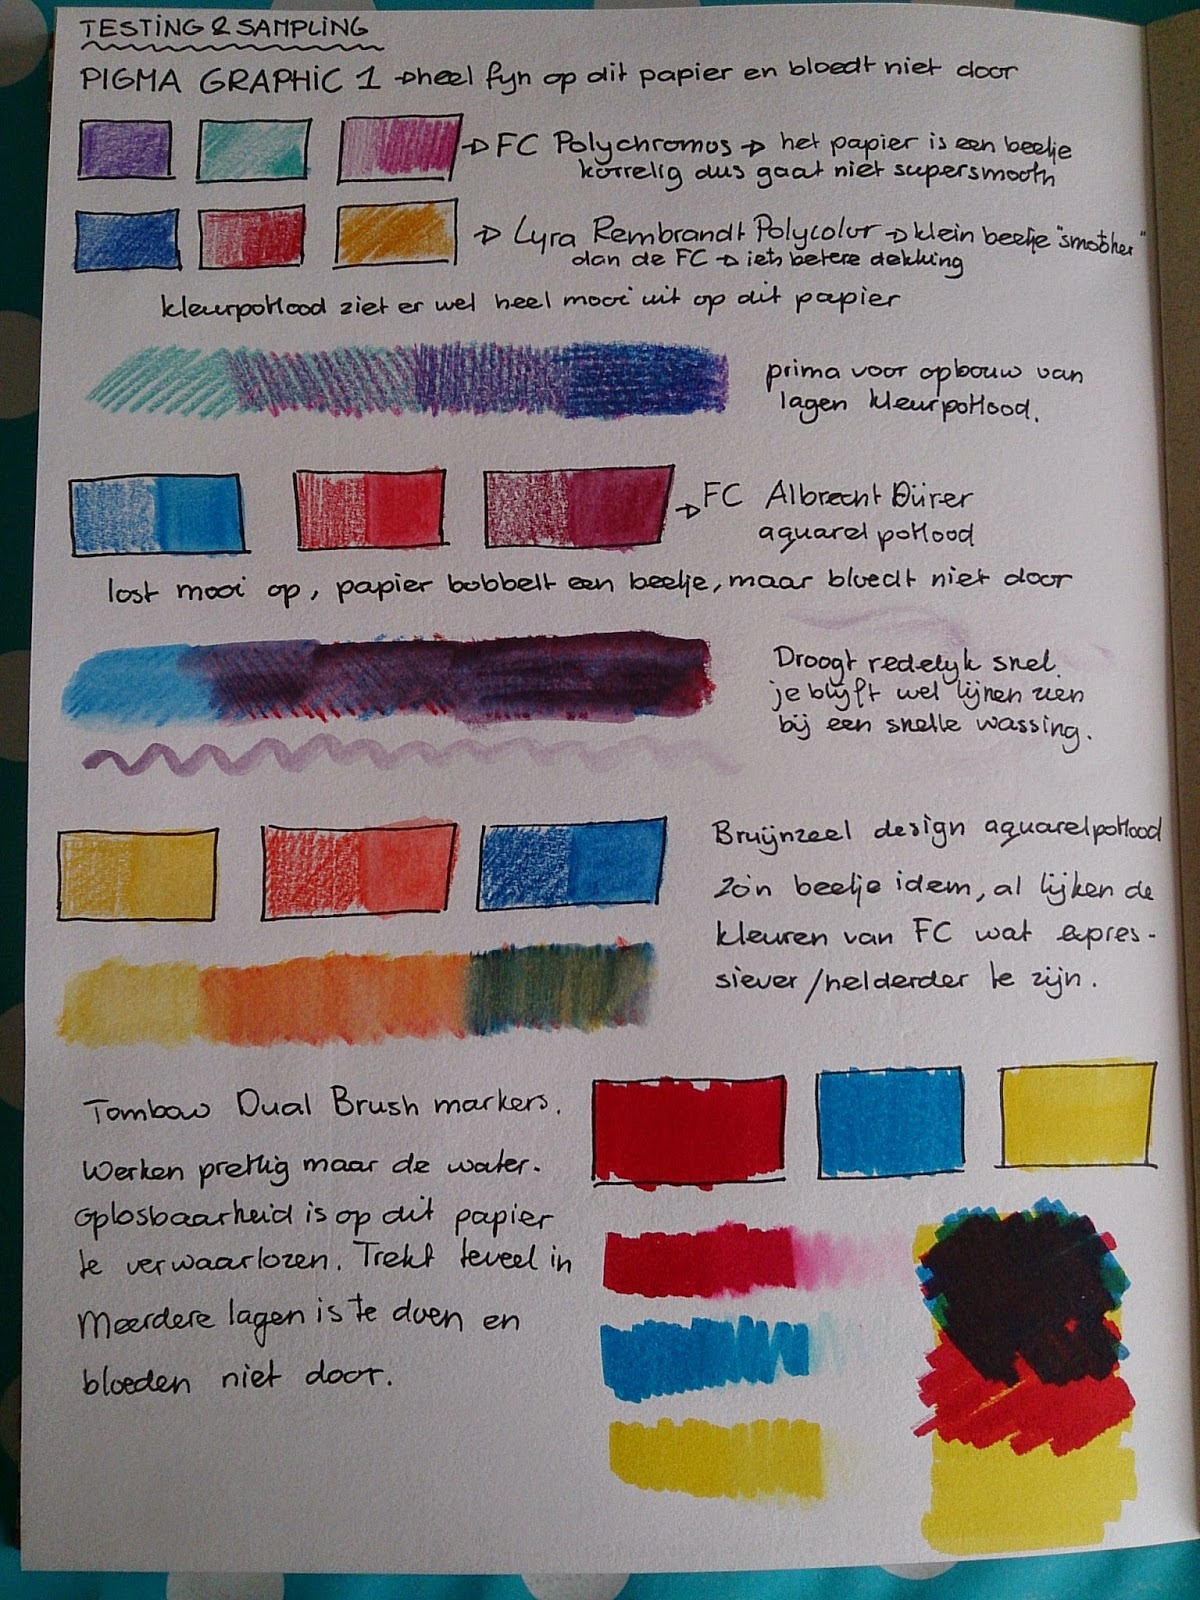 TESTING & SAMPLING
PIGMA GRAPHIC 1 → heel fijn op dit papier en bloedt niet door
→ FC Polychromos → het papier is een beetje
korrelig dus gaat niet supersmooth
→ Lyra Rembrandt Polycolor → klein beetje "smoother"
dan de FC → iets betere dekking
kleurpotlood ziet er wel heel mooi uit op dit papier
prima voor opbouw van
lagen kleurpotlood.
→ FC Albrecht Dürer
aquarelpotlood
lost mooi op, papier bobbelt een beetje, maar bloedt niet door
Droogt redelijk snel.
je blijft wel lijnen zien
bij een snelle wassing.
Bruijnzeel design aquarelpotlood
Zo'n beetje idem, al lijken de
kleuren van FC wat expres-
siever/helderder te zijn.
Tombow Dual Brush markers.
Werken prettig maar de water-
oplosbaarheid is op dit papier
te verwaarlozen. Trekt teveel in
Meerdere lagen is te doen en
bloeden niet door.